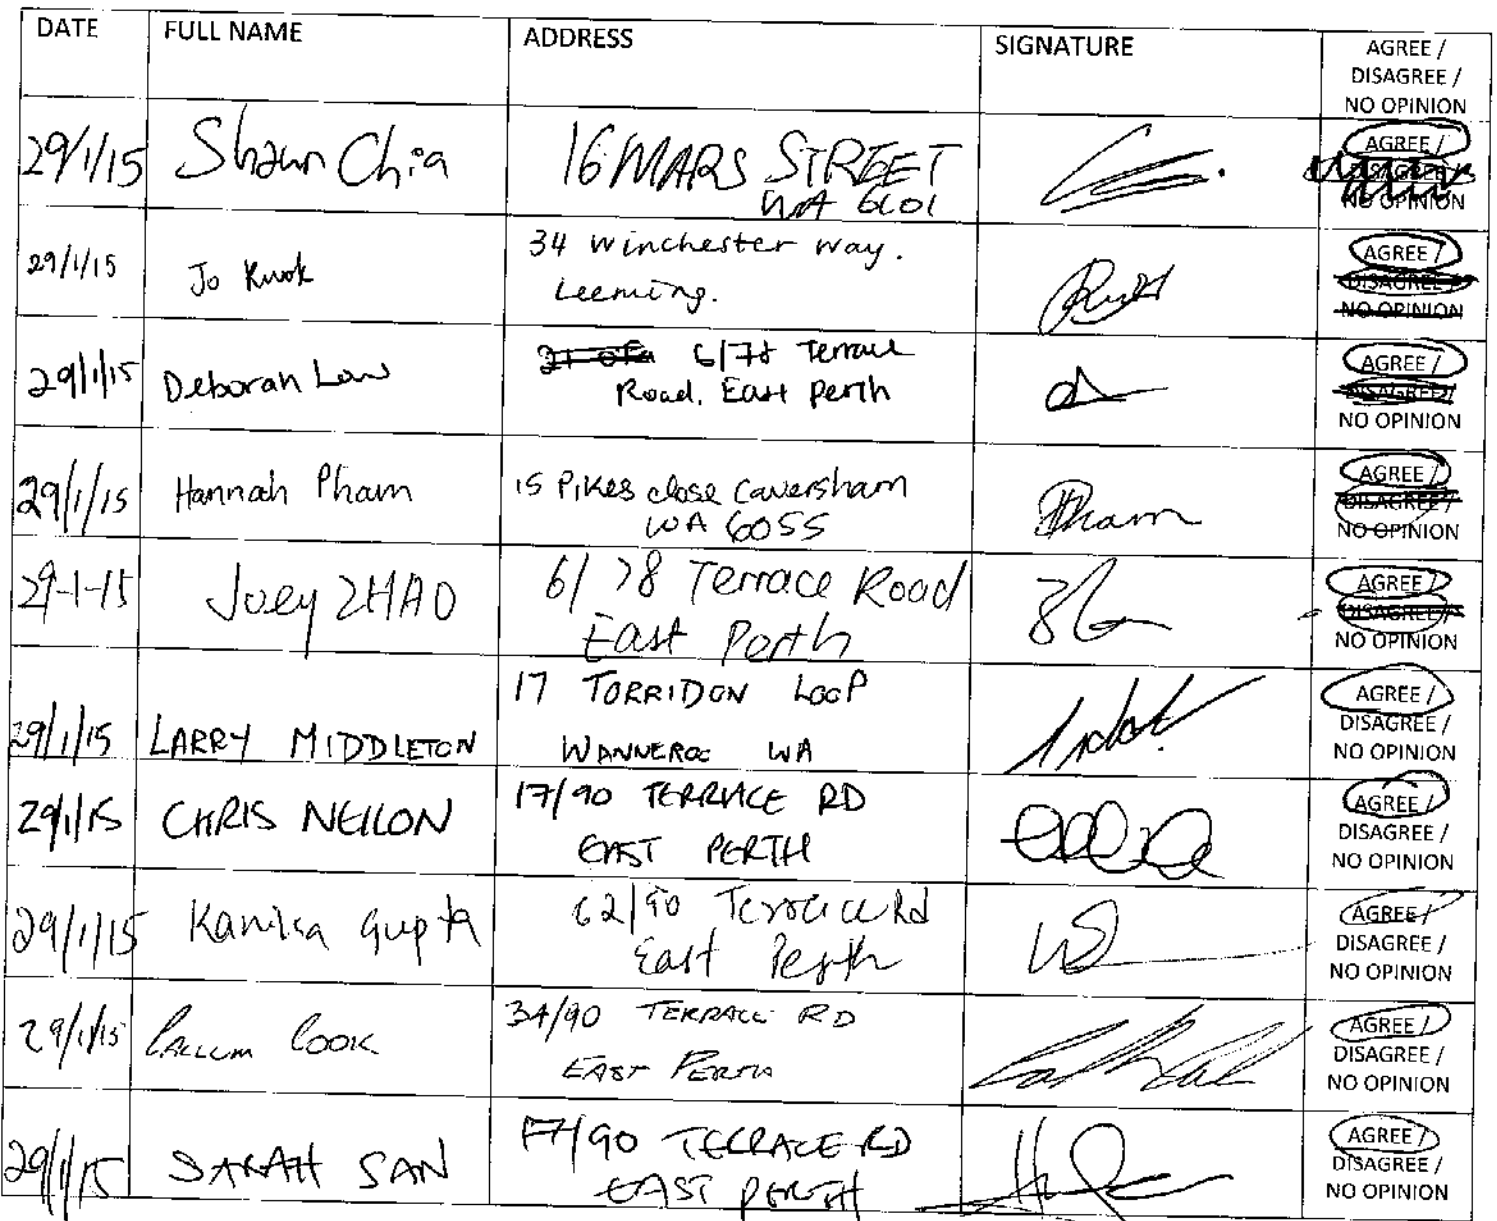 DATE FULL NAME ADDRESS SIGNATURE AGREE /
DISAGREE /
NO OPINION
29/1/15 Shaun Chia 16 MARS STREET AGREE /
WA 6101 DISAGREE /
NO OPINION
29/1/15 Jo Kwok 34 Winchester Way. AGREE /
Leeming. DISAGREE /
NO OPINION
29/1/15 Deborah Law 6/78 Terrace AGREE /
Road, East Perth DISAGREE /
NO OPINION
29/1/15 Hannah Pham 15 Pikes close Caversham AGREE /
WA 6055 DISAGREE /
NO OPINION
29-1-15 Joey ZHAO 6/78 Terrace Road AGREE /
East Perth DISAGREE /
NO OPINION
29/1/15 LARRY MIDDLETON 17 TORRIDON LOOP AGREE /
WANNEROO WA DISAGREE /
NO OPINION
29/1/15 CHRIS NEILON 17/90 TERRACE RD AGREE /
EAST PERTH DISAGREE /
NO OPINION
29/1/15 Kanika Gupta 62/90 Terrace Rd AGREE /
East Perth DISAGREE /
NO OPINION
29/1/15 CALLUM COOK 34/90 TERRACE RD AGREE /
EAST PERTH DISAGREE /
NO OPINION
29/1/15 SARAH SAN 77/90 TERRACE RD AGREE /
EAST PERTH DISAGREE /
NO OPINION